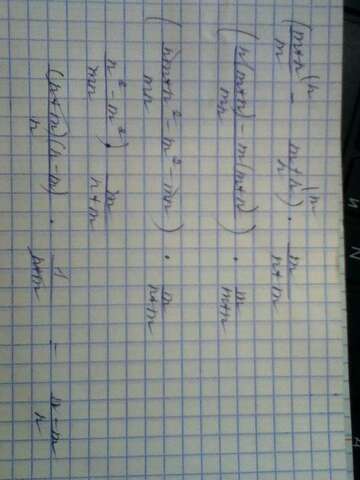 ( (m+n)/m ⁽ⁿ − (m+n)/n ⁽ᵐ ) · m/(n+m)
( (n(m+n) − m(m+n))/mn ) · m/(m+n)
( (nm+n² − m² − mn)/mn ) · m/(n+m)
(n² − m²)/mn · m/(n+m)
((n+m)(n−m))/n · 1/(n+m) = (n−m)/n